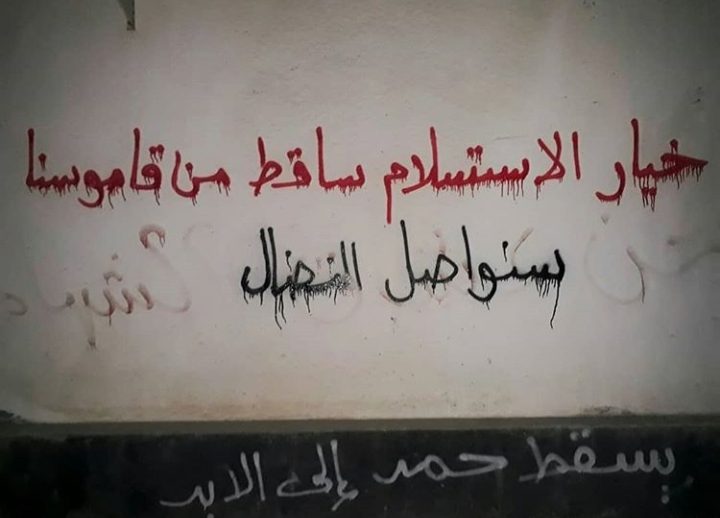 خيار الاستسلام ساقط من قاموسنا
سنواصل النضال
يسقط حمد إلى الابد